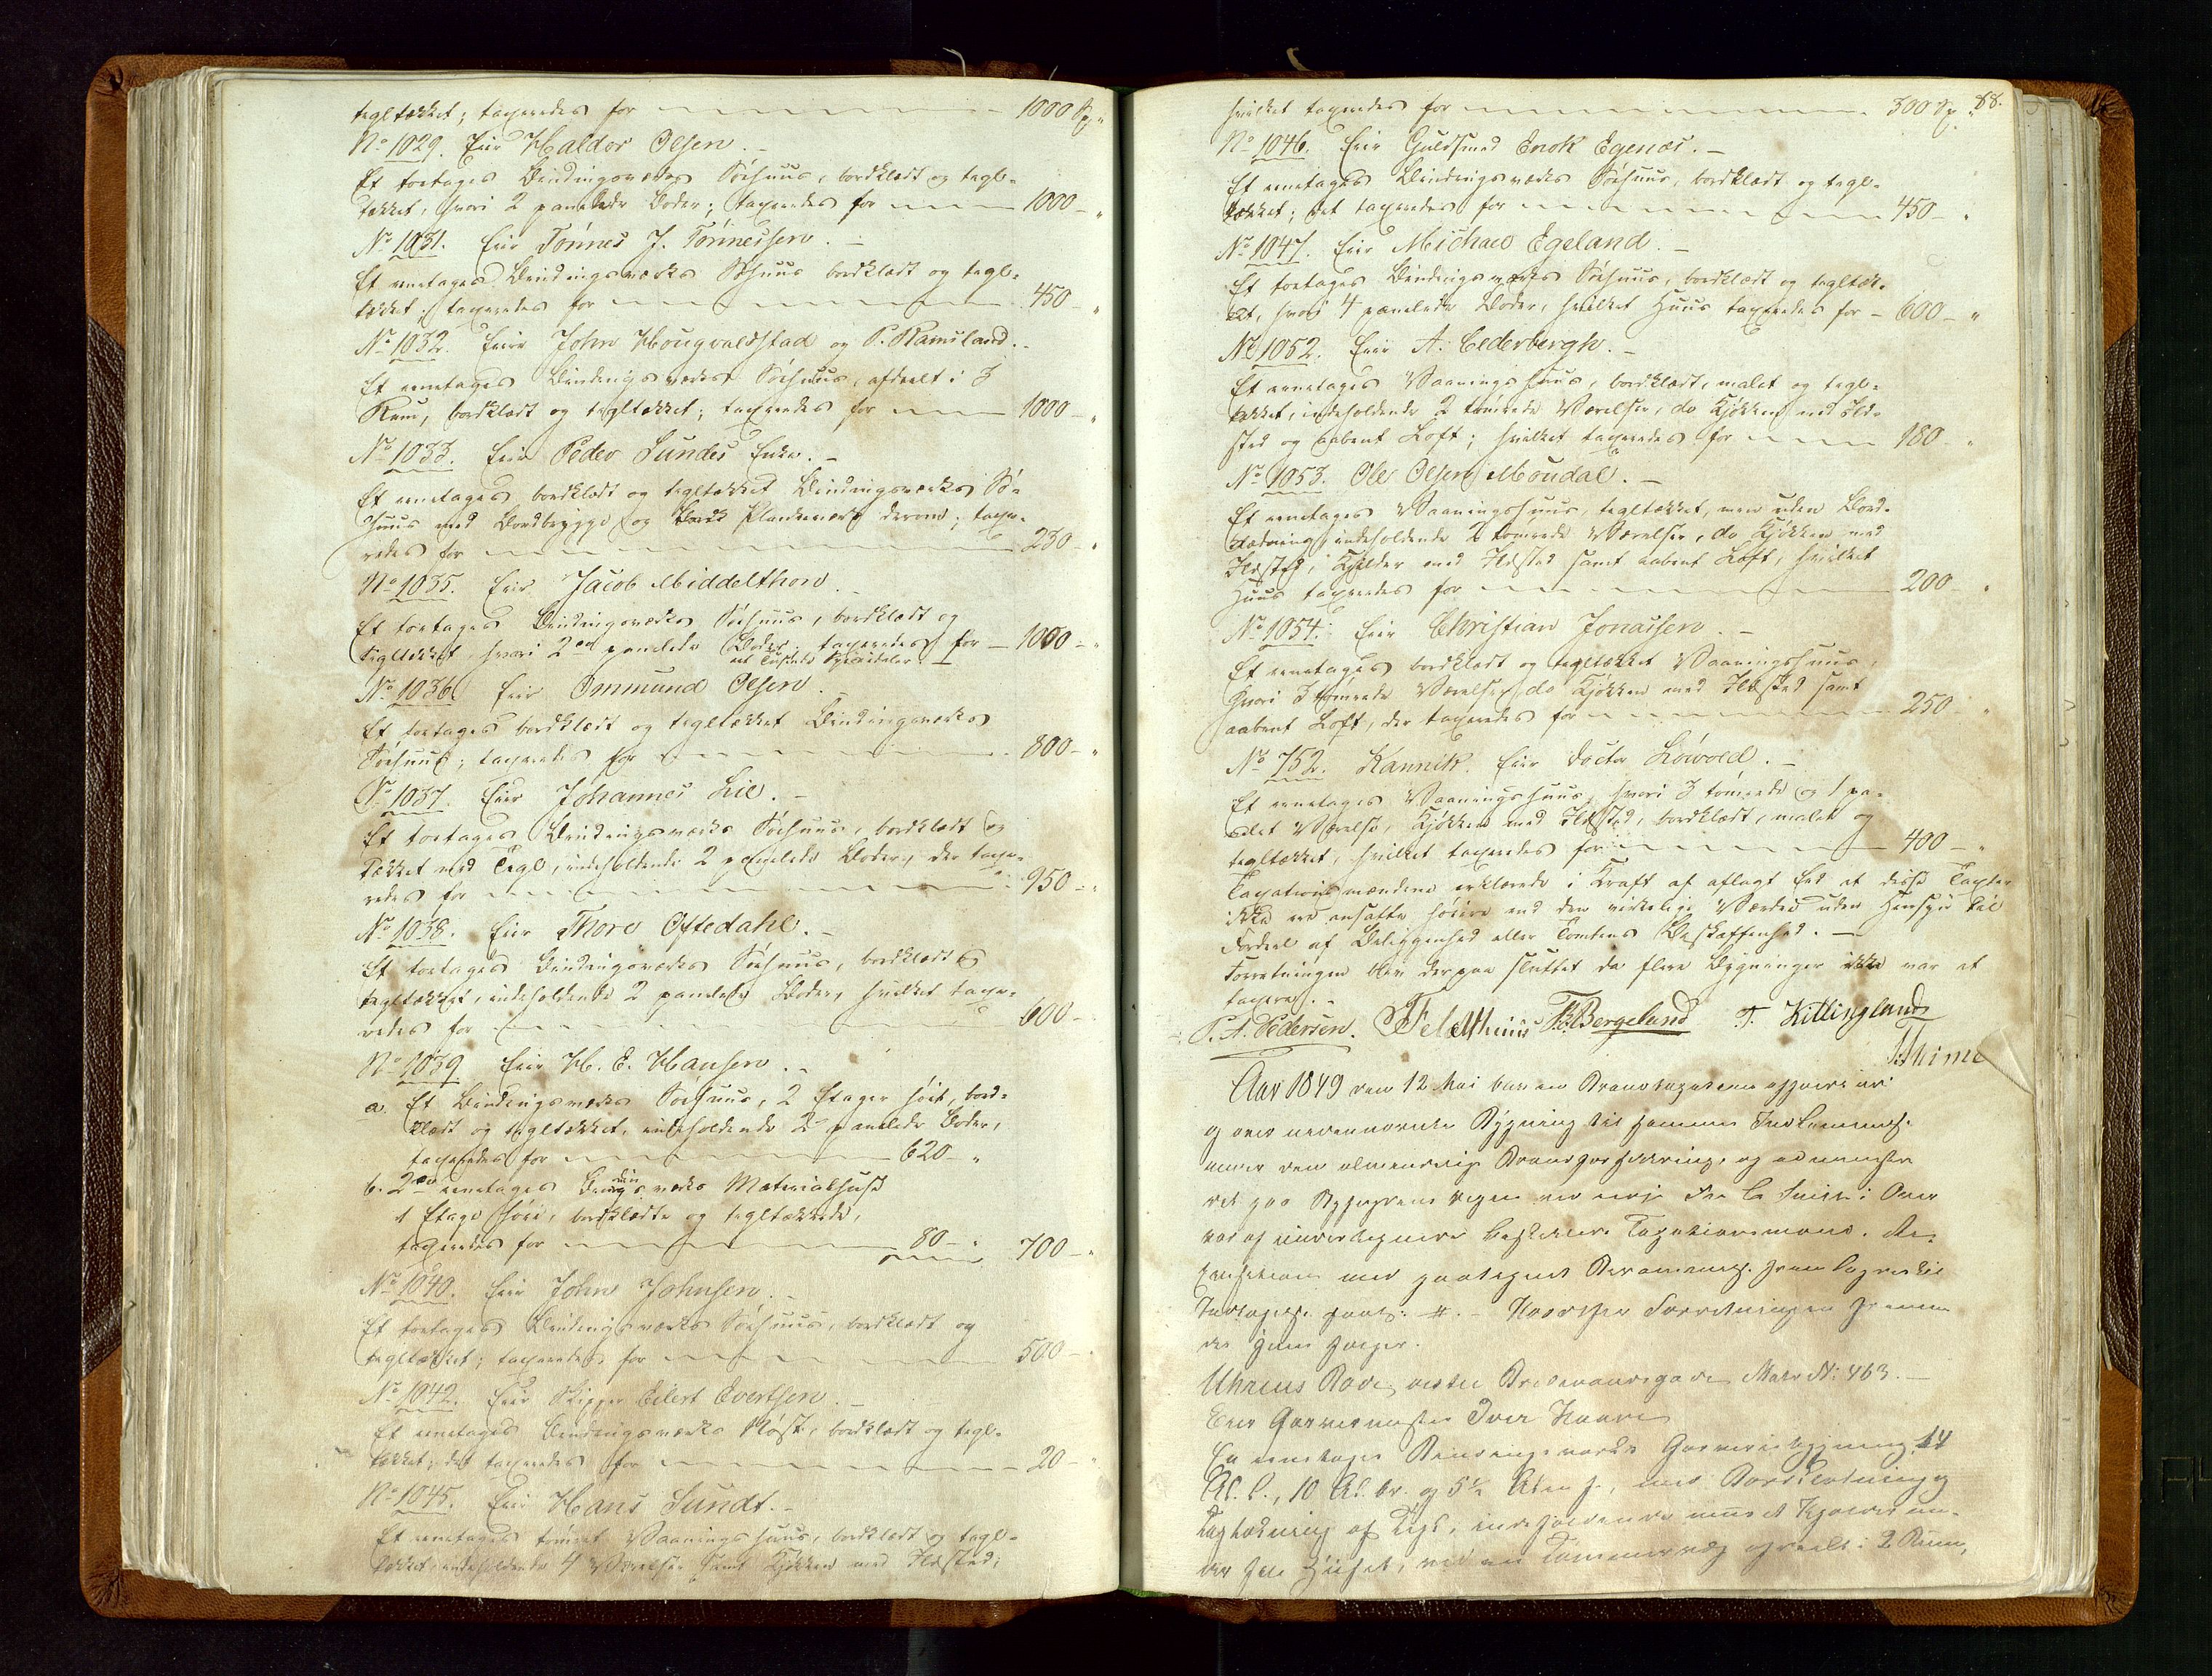 tegltækket; taxeredes for 1000 Sp. "
No 1029. Eier Haldor Olsen. –
Et toetages Bindingsværks Søehuus, bordklædt og tegl-
tækket, hvori 2 panelede Boder; taxeredes for 1000 – "
No 1031. Eier Tönnes J. Tönnessen. –
Et eenetages Bindingsværks Søhuus bordklædt og tegl-
tækket; taxeredes for 450 – "
No 1032. Eiere John Hougvaldstad og P. Ramsland. –
Et eenetages Bindingsværks Søehuus, afdeelt i 3
Rum, bordklædt og tegltækket; taxeredes for 1000 – "
No 1033. Eier Peder Sundes Enke. –
Et eenetages bordklædt og tegltækket Bindingsværks Sø-
huus med Bordbrygge og Plankeværk derom; taxe-
redes for 230 – "
No 1035. Eier Jacob Middelthon. –
Et toetages Bindingsværks Søehuus, bordklædt og
tegltækket, hvori 2de panelede Boder, taxeredes for – 1000 – "
et Tusinde Speciedaler
No 1036. Eier Ommund Olsen. –
Et toetages bordklædt og tegltækket Bindingsværks
Søehuus; taxeredes for 800 – "
No 1037. Eier Johannes Lie. –
Et toetages Bindingsværks Søehuus, bordklædt og
tækket med Tegl, indeholdende 2 panelede Boder, der taxe-
redes for 950 – "
No 1038. Eier Thore Oftedahl. –
Et toetages Bindingsværks Søehuus, bordklædt og
tegltækket, indeholdende 2 panelede Boder, hvilket taxe-
redes for 600 –
No 1039 Eier H. E. Hansen. –
a. Et Bindingsværks Søehuus, 2 Etager høit, bord-
klædt og tegltækket, indeholdende 2 panelede Boder,
taxeredes for 620 – "
b. 2de eenetages Bindingsværks Materialhuse
1 Etage høie, bordklædte og tegltækkede,
taxeredes for 80 – " 700 – "
No 1040. Eier John Johnsen. –
Et toetages Bindingsværks Søehuus, bordklædt og
tegltækket; taxeredes for 500 – "
No 1042. Eier Skipper Eilert Evertsen. –
Et eenetages Bindingsværks Nøst, bordklædt og tegl-
tækket; det taxeredes for 20 – "
No 1045. Eier Hans Sundt. –
Et eenetages tømret Vaaningshuus, bordklædt og tegl-
tækket, indeholdende 4 Værelser samt Kjøkken med Ildsted;
88.
hvilket taxeredes for 300 Sp. "
No 1046. Eier Guldsmed Enok Egenæs. –
Et eenetages Bindingsværks Søehuus, bordklædt og tegl-
tækket; det taxeredes for 450 – "
No 1047. Eier Michael Egeland. –
Et toetages Bindingsværks Søehuus, bordklædt og tegltæk-
ket, hvori 4 panelede Boder, hvilket Huus taxeredes for – 600 – "
No 1052. Eier A. Cederbergh. –
Et eenetages Vaaningshuus, bordklædt, malet og tegl-
tækket, indeholdende 2 tømrede Værelser, do Kjøkken med Ild-
sted og aabent Loft; hvilket taxeredes for 180 – "
No 1053. Ole Olsen Moudal. –
Et eenetages Vaaningshuus, tegltækket, men uden Bord-
klædning, indeholdende 2 tømrede Værelser, do Kjøkken med
Ildsted, Kjelder med Ildsted samt aabent Loft, hvilket
Huus taxeredes for 200 "
No 1054. Eier Christian Jonassen. –
Et eenetages bordklædt og tegltækket Vaaningshuus,
hvori 3 tømrede Værelser, do Kjøkken med Ildsted samt
aabent Loft, der taxeredes for 250 "
No 752. Kannik. Eier Doctor Löwold. –
Et eenetages Vaaningshuus, hvori 3 tømrede og 1 pa-
nelet Værelse, Kjøkken med Ildsted, bordklædt, malet og
tegltækket, hvilket taxeredes for 400 – "
Taxationsmændene erklærede i Kraft af aflagt Eed at disse Taxter
ikke ere ansatte høiere end den virkelige Værdie uden Hensyn til
Fordeel af Beliggenhed eller Tomtens Beskaffenhed. –
Forretningen blev derpaa sluttet da flere Bygninger ikke var at
taxere. –
P. A. Pedersen. Feldthuus B. Bergeland T. Kitlingland
Thime
Aar 1849 den 12 Mai blev en Brandtaxation afholdt
og over nedennævnte Bygning til sammes Indlemmelse
under den almindelige Brandforsikring, og administre-
ret paa Byfogdens Vegne ved
af undertegnede beskikkede Taxationsmænd. Re-
qvisition med paategnet Berammelse fremlagdes til
Indtagelse saal: #. – Hvorefter Forretningen fremme-
des som følger.
Uhrens Rode, vestre Matr N: 463. –
Eier Garvermester Iver
En eenetages Bindingsværks Garveriebygning, 14
Al. l., 10 Al. br. og 5½ Alen h., med Bordklædning og
Tagtækning af Tegl, indeholdende muret Kjælder un-
der hele Huset, ved en Tømmervæg afdeelt i 2 Rum,